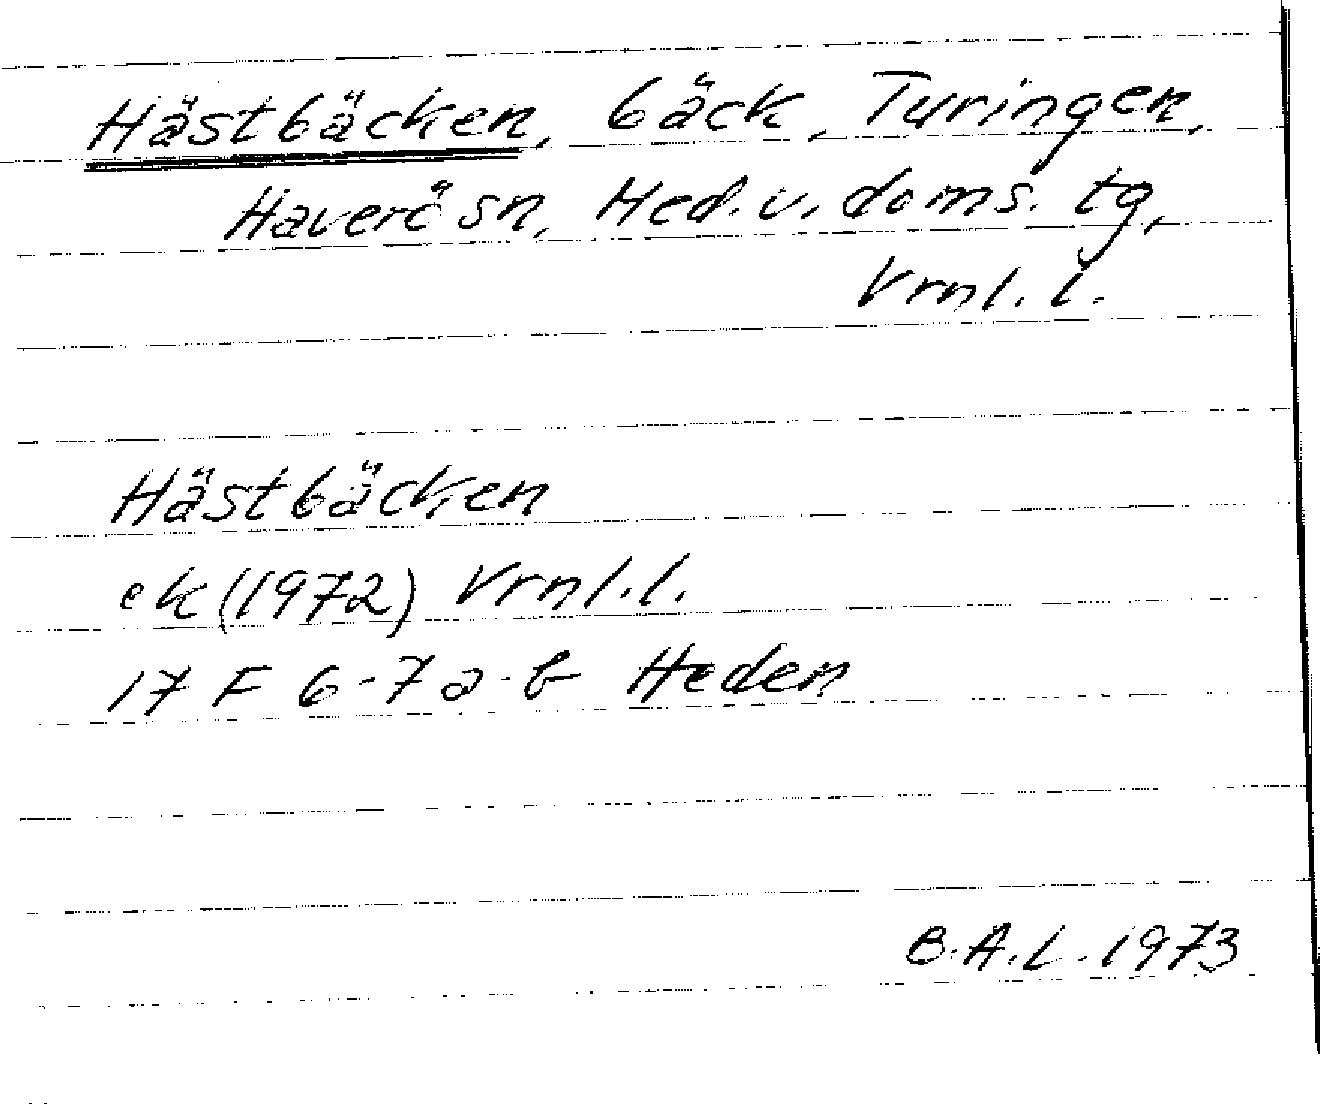 Hästbäcken, bäck, Turingen,
Haverö sn, Med. v. doms. tg,
Vrnl. l.
Hästbäcken
ek (1972) Vrnl. l.
17 F 6-7 a-b Heden
B.A.L. 1973